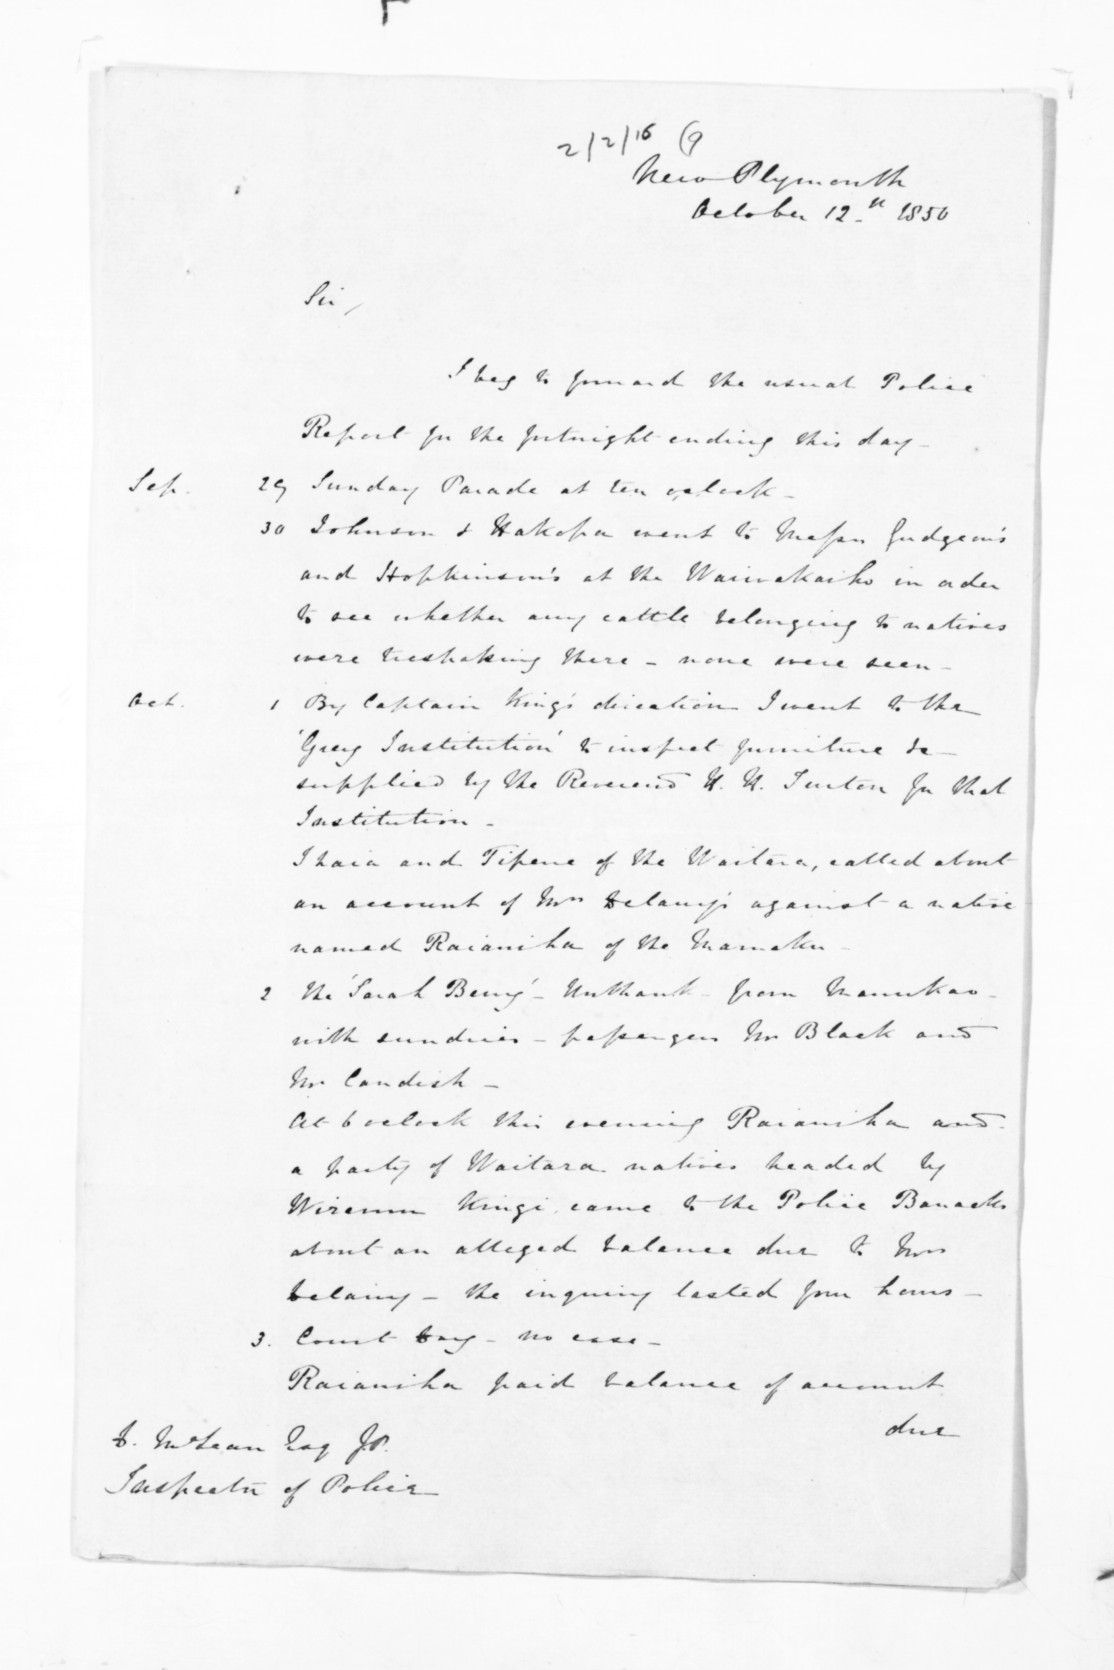 2/2/16 (9
New Plymouth
October 12th 1850
Sir,
I beg to forward the usual Police
Report for the fortnight ending this day -
Sep. 29 Sunday Parade at ten o'clock -
30 Johnson & Hakopa went to Messrs Gudgeon's
and Hopkinson's at the Waiwakaiho in order
to see whether any cattle belonging to natives
were trespassing there - none were seen -
Oct. 1 By Captain King's direction I went to the
'Grey Institution' to inspect furniture &c
supplied by the Reverend H. H. Turton for that
Institution -
Ihaia and Tipene of the Waitara, called about
an account of Mrs Delaney's against a native
named Raianiha of the Mamaku -
2 The 'Sarah Berry' - Unthank - from Manukao -
with sundries - passengers Mr Black and
Mr Candish -
At 6 oclock this evening Raianiha and
a party of Waitara natives headed by
Wiremu Kingi came to the Police Barracks
about an alleged balance due to Mrs
Delany - the inquiry lasted four hours -
3. Court Day - no case -
Raianiha paid balance of account
due
D. McLean Esq J.P.
Inspector of Police